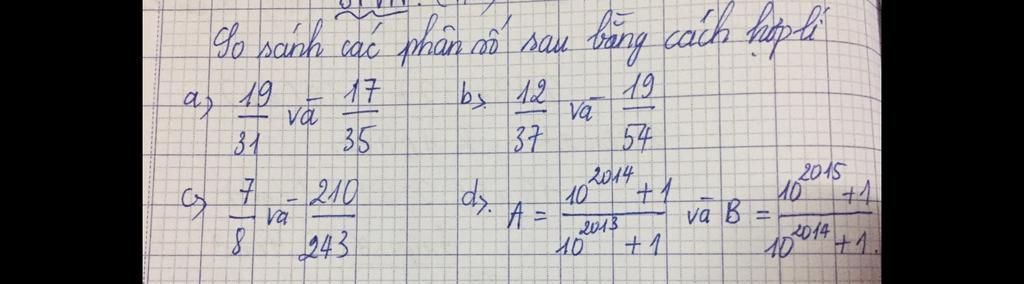 So sánh các phân số sau bằng cách hợp lí
a) 19/31 và 17/35 b) 12/37 và 19/54
c) 7/8 và 210/243 d) A = (10^2014 + 1)/(10^2013 + 1) và B = (10^2015 + 1)/(10^2014 + 1).